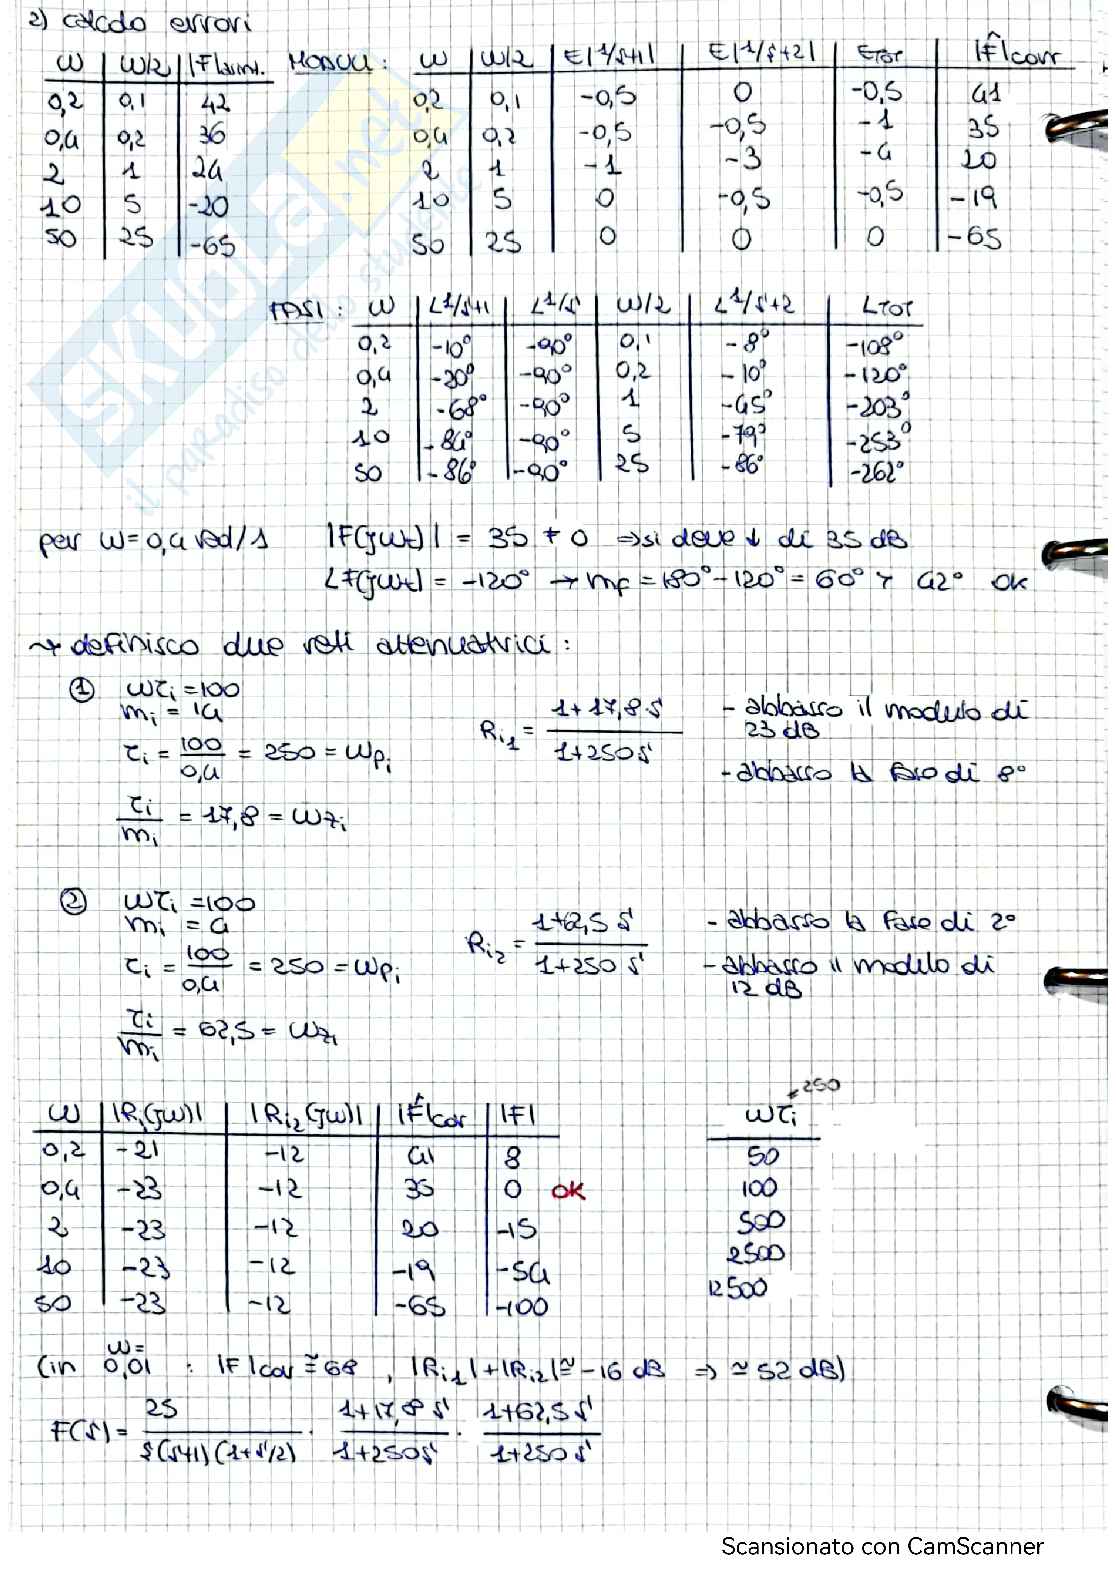 2) calcolo errori
ω | ω/2 | |F|asint. MODULI: ω | ω/2 | E|1/s+1| | E|1/s+2| | ETOT | |F̂|corr
0,2 | 0,1 | 42 0,2 | 0,1 | -0,5 | 0 | -0,5 | 41
0,4 | 0,2 | 36 0,4 | 0,2 | -0,5 | -0,5 | -1 | 35
2 | 1 | 24 2 | 1 | -1 | -3 | -4 | 20
10 | 5 | -20 10 | 5 | 0 | -0,5 | -0,5 | -19
50 | 25 | -65 50 | 25 | 0 | 0 | 0 | -65
FASI: ω | ∠1/s+1 | ∠1/s | ω/2 | ∠1/s+2 | ∠TOT
0,2 | -10° | -90° | 0,1 | -8° | -108°
0,4 | -20° | -90° | 0,2 | -10° | -120°
2 | -68° | -90° | 1 | -45° | -203°
10 | -84° | -90° | 5 | -79° | -253°
50 | -86° | -90° | 25 | -86° | -262°
per ω=0,4 rad/s |F(jωt)| = 35 ≠ 0 ⇒ si deve ↓ di 35 dB
∠F(jωt) = -120° → mφ = 180°-120° = 60° > 42° OK
→ definisco due reti attenuatrici:
① ωτi = 100
mi = 14
Ri1 = 1+17,8s / 1+250s - abbasso il modulo di
23 dB
τi = 100/0,4 = 250 = ωpi
- abbasso la fase di 8°
τi/mi = 17,8 = ωzi
② ωτi = 100
mi = 4
Ri2 = 1+62,5 s / 1+250 s - abbasso la fase di 2°
τi = 100/0,4 = 250 = ωpi - abbasso il modulo di
12 dB
τi/mi = 62,5 = ωzi
ω | |Ri(jω)| | |Ri2(jω)| | |F̂|cor | |F| ωτi ↙250
0,2 | -21 | -12 | 41 | 8 50
0,4 | -23 | -12 | 35 | 0 OK 100
2 | -23 | -12 | 20 | -15 500
10 | -23 | -12 | -19 | -54 2500
50 | -23 | -12 | -65 | -100 12500
(in ω=0,01 : |F|cor ≅ 68 , |Ri1|+|Ri2| ≅ -16 dB ⇒ ≃ 52 dB)
F(s) = 25 / s(s+1)(1+s/2) · 1+17,8 s / 1+250s · 1+62,5 s / 1+250 s
SKUOLA.net
il paradiso dello studente
Scansionato con CamScanner